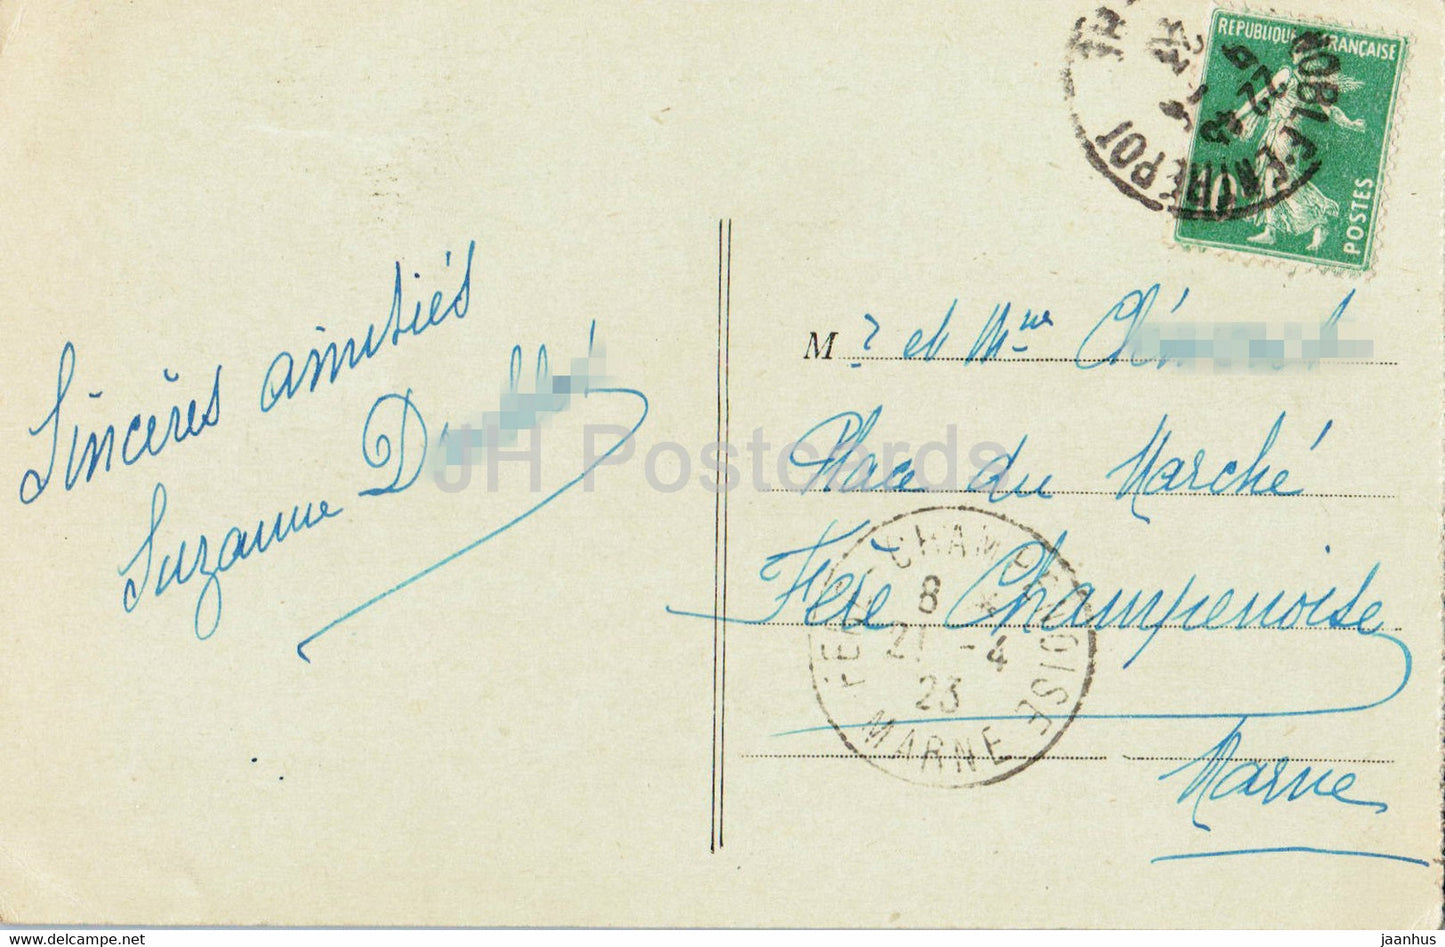 RÉPUBLIQUE FRANÇAISE
10
POSTES
ENTREPOT
Sincères amitiés
Suzanne
M
r et Mme
Place du Marché
Fère Champenoise
Marne
FÈRE CHAMPENOISE
8
21 -4
23
MARNE
JH Postcards
www.delcampe.net
jaanhus